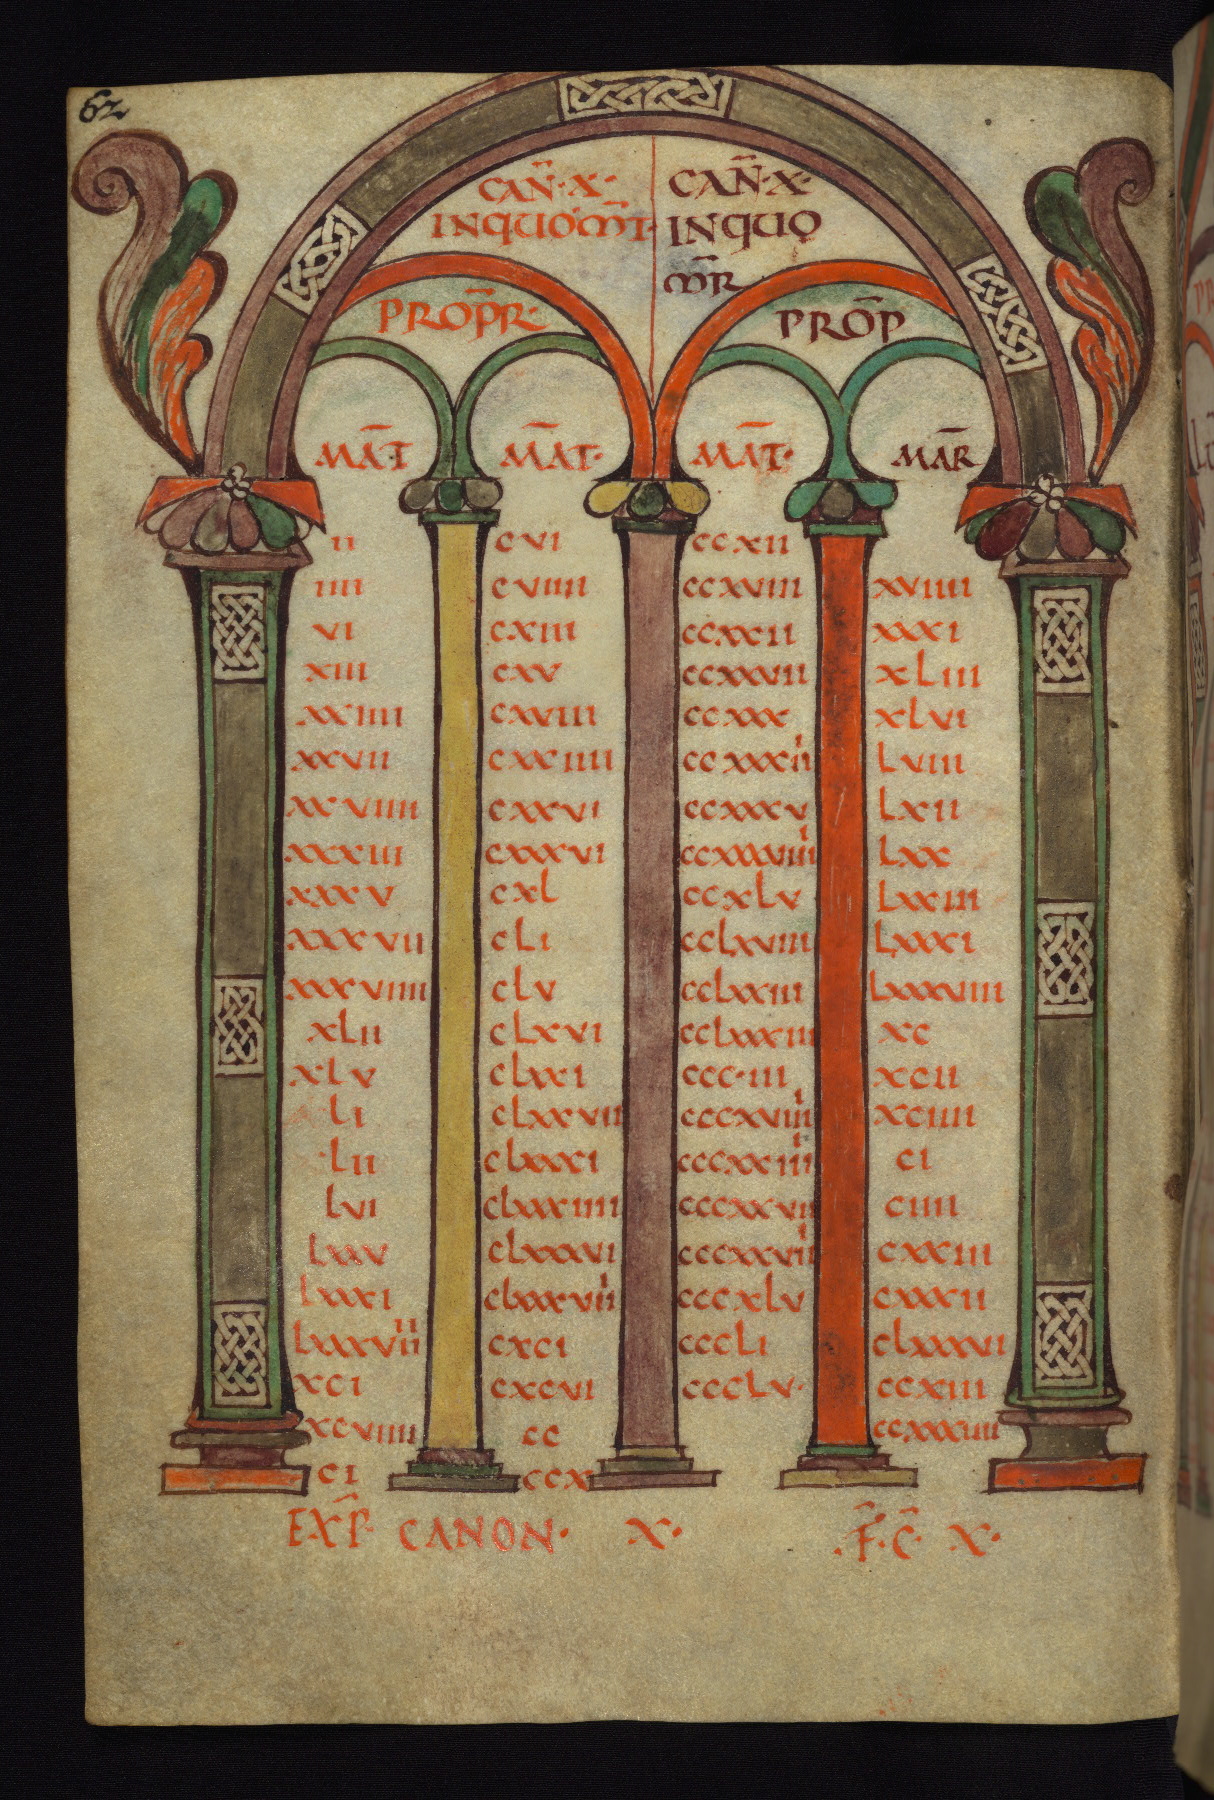 62
CAN̄·X·
INQUO M̄T·
CAN̄·X·
INQUO
M̄R
PROP̄R·
PRŌP
MĀT
II
IIII
VI
XIII
XXIIII
XXVII
XXVIIII
XXXIII
XXXV
XXXVII
XXXVIIII
XLII
XLV
LI
LII
LVI
LXXV
LXXXI
LXXXVIIII
XCI
XCVIIII
CI
MĀT·
CVI
CVIIII
CXIII
CXV
CXVIII
CXXIIII
CXXVI
CXXXVI
CXL
CLI
CLV
CLXVI
CLXXI
CLXXVII
CLXXXI
CLXXXIIII
CLXXXVI
CLXXXVIII
CXCI
CXCVI
CC
CCX
MĀT·
CCXII
CCXVIII
CCXXII
CCXXVII
CCXXX
CCXXXIII
CCXXXV
CCXXXVIIII
CCXLV
CCLXVIII
CCLXXIII
CCLXXXIII
CCC·III
CCCXVIIII
CCCXXIIII
CCCXXVII
CCCXXVIII
CCCXLV
CCCLI
CCCLV·
MĀR
XVIIII
XXXI
XLIII
XLVI
LVIII
LXII
LXX
LXXIII
LXXXI
LXXXVIII
XC
XCII
XCIIII
CI
CIIII
CXXIII
CXXXII
CLXXXVI
CCXIII
CCXXXIIII
EXP̄· CANON· X· ·F̄·C̄· X·